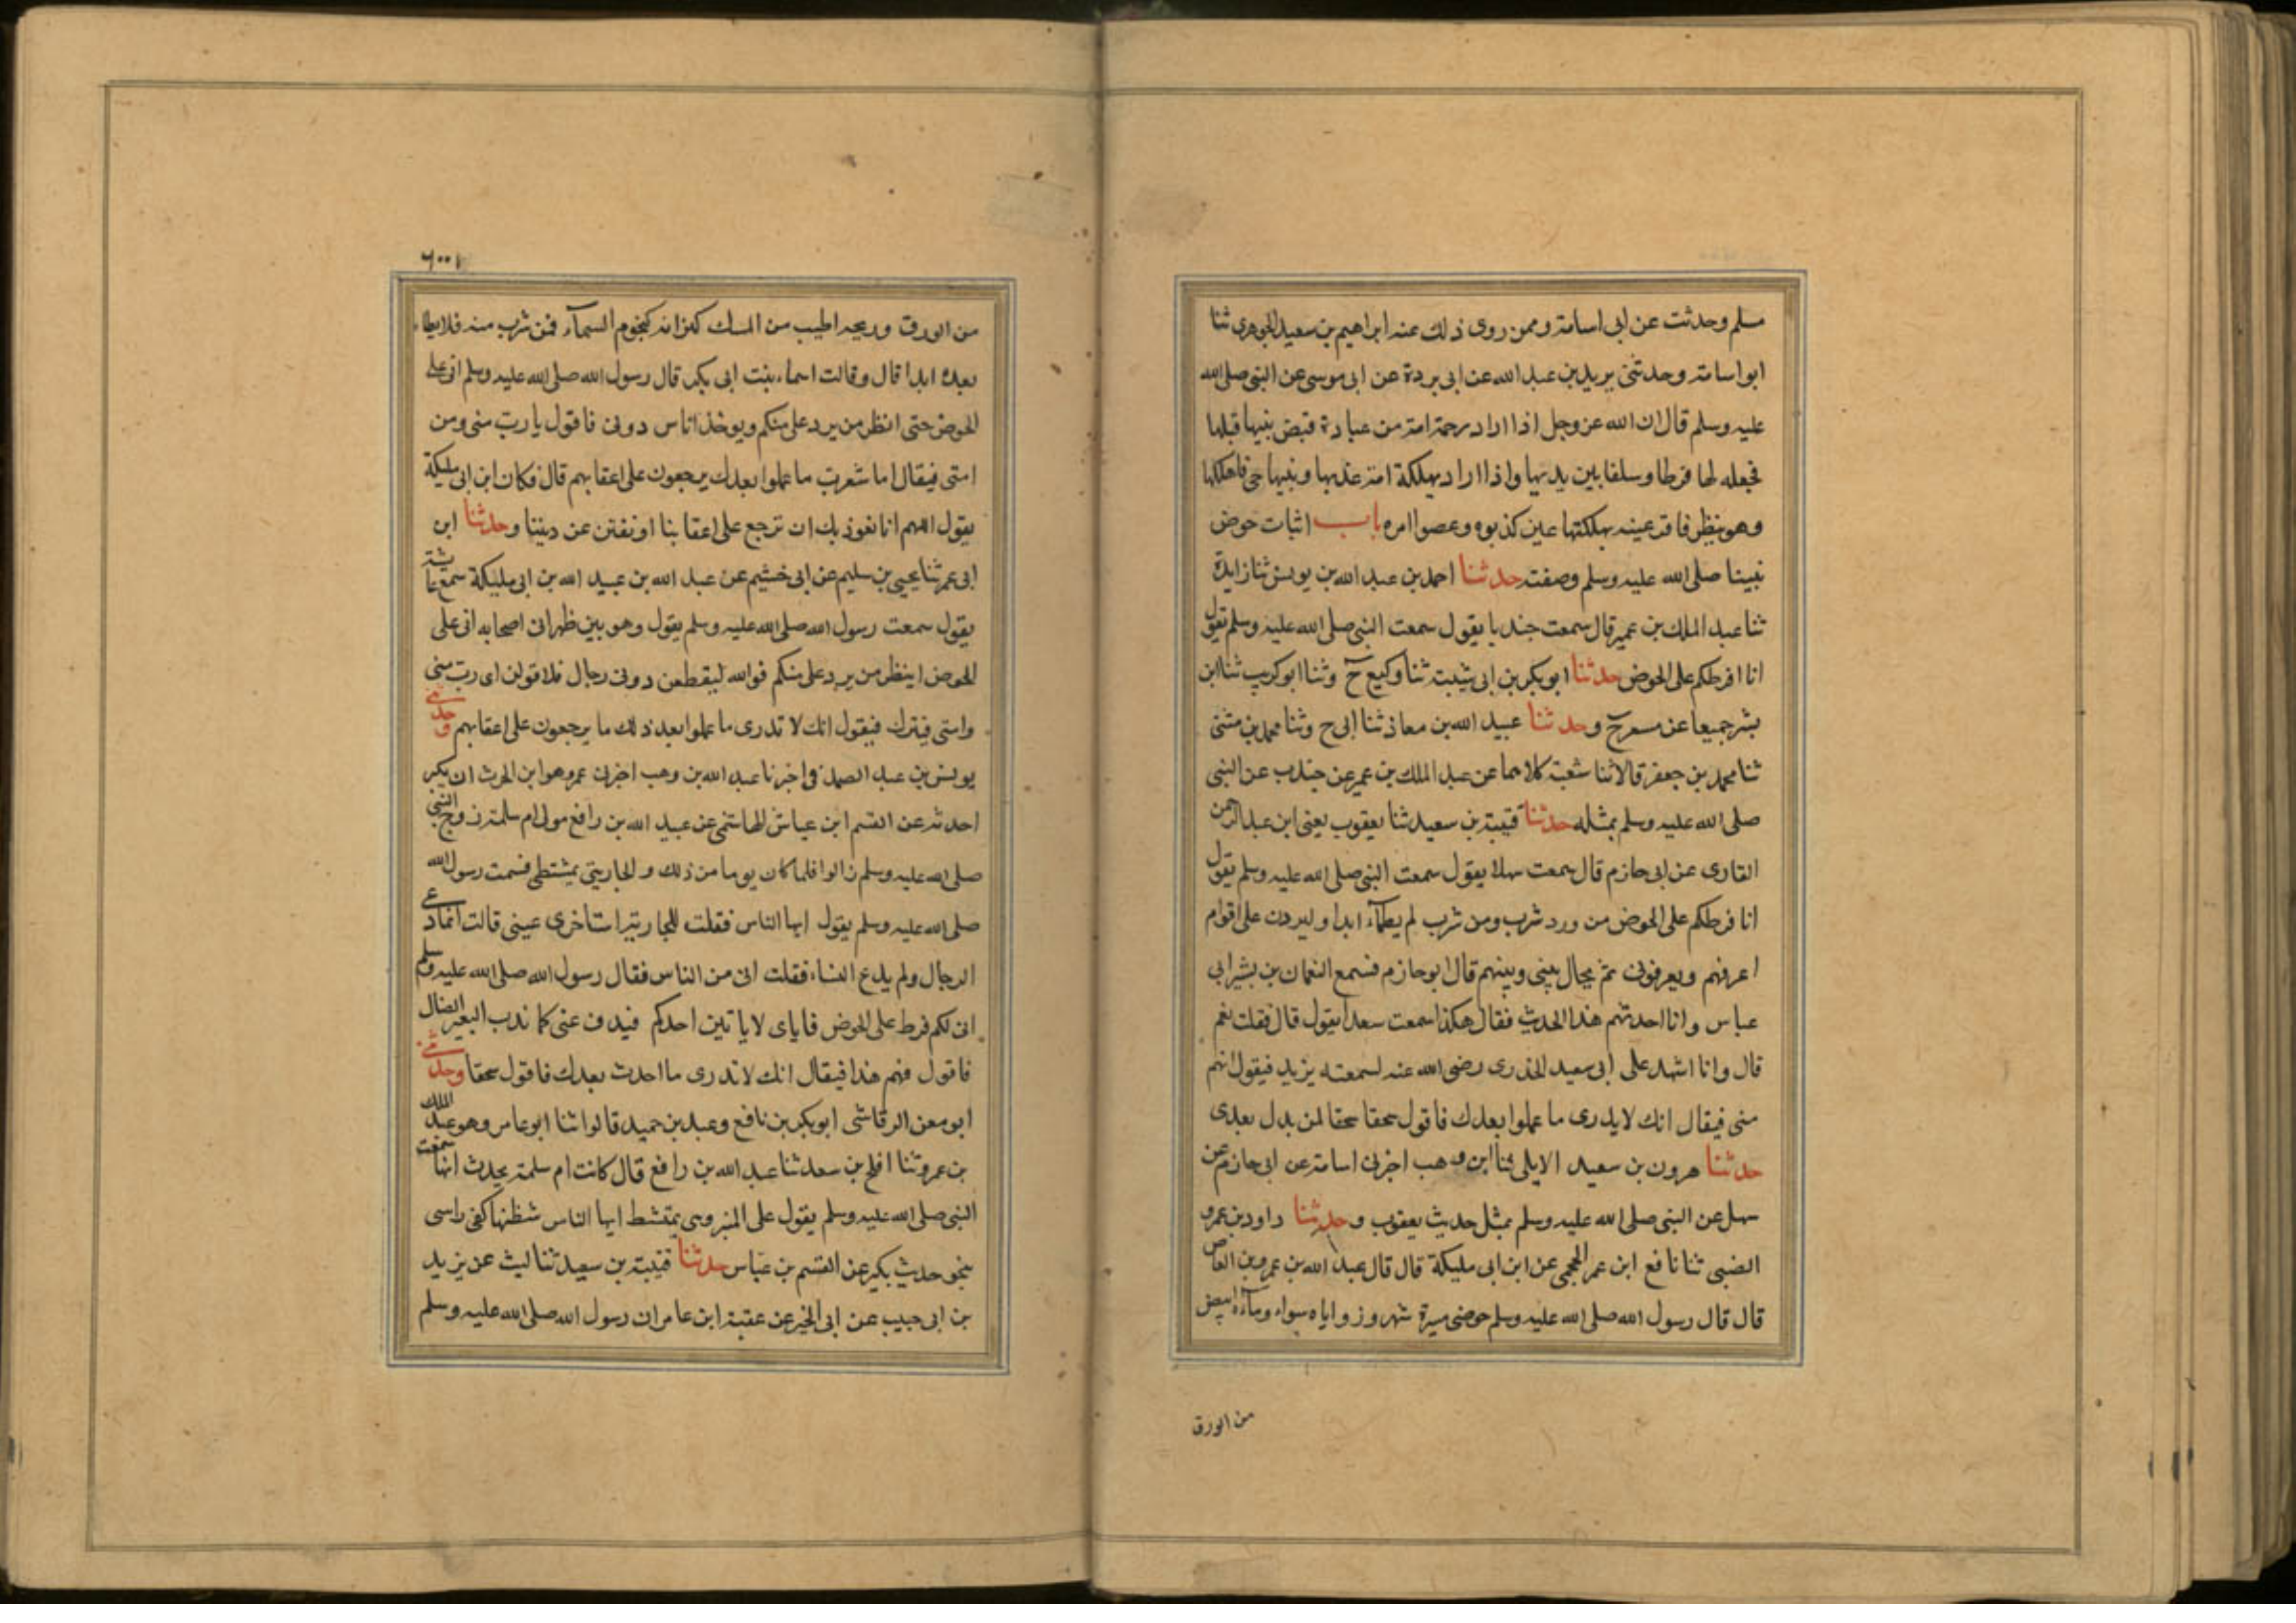 مسلم وحدثت عن ابى اسامة وممن روى ذلك عنه ابراهيم بن سعيد الجوهرى ثنا
ابو اسامة وحدثنى بريد بن عبد الله عن ابى بردة عن ابى موسى عن النبى صلى الله
عليه وسلم قال ان الله عز وجل اذا اراد رحمة امة من عبادة قبض نبيها قبلها
فجعله لها فرطا وسلفا بين يديها واذا اراد بهلكة امة عذبها ونبيها حى فاهلكها
وهو ينظر فاقر عينه بهلكتها عين كذبوه وعصوا امره باب اثبات حوض
نبينا صلى الله عليه وسلم وصفته حدثنا احمد بن عبد الله بن يونس ثنا زايدة
ثنا عبد الملك بن عمير قال سمعت جندبا يقول سمعت النبى صلى الله عليه وسلم يقول
انا افرطكم على الحوض حدثنا ابو بكر بن ابى شيبة ثنا وكيع ح وثنا ابو كريب ثنا ابن
بشر جميعا عن مسعر ح وحدثنا عبيد الله بن معاذ ثنا ابى ح وثنا محمد بن مثنى
ثنا محمد بن جعفر قالا ثنا شعبة كلاهما عن عبد الملك بن عمير عن جندب عن النبى
صلى الله عليه وسلم بمثله حدثنا قتيبة بن سعيد ثنا يعقوب يعنى ابن عبد الرحمن
القارى عن ابى حازم قال سمعت سهلا يقول سمعت النبى صلى الله عليه وسلم يقول
انا فرطكم على الحوض من ورد شرب ومن شرب لم يظمآء ابدا وليردن على اقوام
اعرفهم ويعرفونى ثم يحال بينى وبينهم قال ابو حازم فسمع النعمان بن بشير ابى
عباس وانا احدثهم هذا الحديث فقال هكذا سمعت سعدا يقول قال فقلت نعم
قال وانا اشهد على ابى سعيد الخدرى رضى الله عنه لسمعته يزيد فيقول انهم
منى فيقال انك لا يدرى ما عملوا بعدك فاقول سحقا سحقا لمن بدل بعدى
حدثنا هرون بن سعيد الايلى ثنا ابن وهب اخبرنى اسامة عن ابى حازم عن
سهل عن النبى صلى الله عليه وسلم بمثل حديث يعقوب وحدثنا داود بن عمرو
الضبى ثنا نافع ابن عمر الجمحى عن ابن ابى مليكة قال قال عبد الله بن عمرو بن العاص
قال قال رسول الله صلى الله عليه وسلم حوضى مسيرة شهر وزواياه سواء ومآءه ابيض
من الورق
١٠٠٦
من الورق وريحه اطيب من المسك كيزانه كنجوم السمآء فمن شرب منه فلا يظماء
بعده ابدا قال وقالت اسماء بنت ابى بكر قال رسول الله صلى الله عليه وسلم انى على
الحوض حتى انظر من يرد على منكم ويوخذ اناس دونى فاقول يا رب منى ومن
امتى فيقال اما شعرت ما عملوا بعدك يرجعون على اعقابهم قال فكان ابن ابى مليكة
يقول اللهم انا نعوذ بك ان نرجع على اعقابنا او نفتن عن ديننا وحدثنا ابن
ابى عمر ثنا يحيى بن سليم عن ابى خثيم عن عبد الله بن عبيد الله بن ابى مليكة سمع عائشة
يقول سمعت رسول الله صلى الله عليه وسلم يقول وهو بين ظهرانى اصحابه انى على
الحوض اينظر من يرد على منكم فوالله ليقطعن دونى رجال فلاقولن اى رب منى
وامتى فيترك فيقول انك لا تدرى ما عملوا بعد ذلك ما يرجعون على اعقابهم وحدثنى
يونس بن عبد الصمد فى اخبرنا عبد الله بن وهب اخبرنى عمرو وهو ابن الحرث ان بكير
احدثه عن القسم ابن عباش الهاشمى عن عبيد الله بن رافع مولى ام سلمة زوج النبى
صلى الله عليه وسلم زالوا فلما كان يوما من ذلك والجاريتى يمشتطى فسمت رسول الله
صلى الله عليه وسلم يقول ايها الناس فقلت للجارية استاخرى عينى قالت انما دعى
الرجال ولم يدع النساء فقلت انى من الناس فقال رسول الله صلى الله عليه وسلم
انى لكم فرط على الحوض فاياى لا ياتين احدكم فيدف عنى كما ندب البعير الضال
فاقول فهم هذا فيقال انك لا تدرى ما احدث بعدك فاقول سحقا وحدثنى
ابو معن الرقاشى ابو بكر بن نافع وعبد بن حميد قالوا ثنا ابو عامر وهو عبد الملك
بن عمرو ثنا افلح بن سعد ثنا عبد الله بن رافع قال كانت ام سلمة يحدث انها سمعت
النبى صلى الله عليه وسلم يقول على المنبر وهى يمتشط ايها الناس شظنها كفى راسى
بنحو حديث بكير عن القسم بن عباس حدثنا قتيبة بن سعيد ثنا ليث عن يزيد
بن ابى حبيب عن ابى الخير عن عقبة ابن عامر ان رسول الله صلى الله عليه وسلم